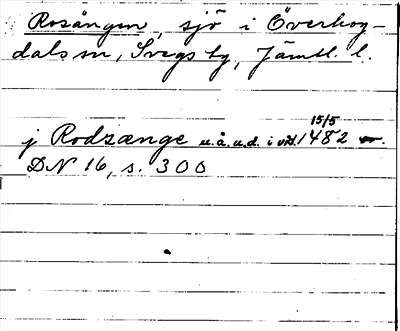 Rosången, sjö i Överhog-
dals sn, Svegs tg, Jämtl. l.
15/5
j Rodzænge u.å.u.d. i vid. 1482
DN 16, s. 300